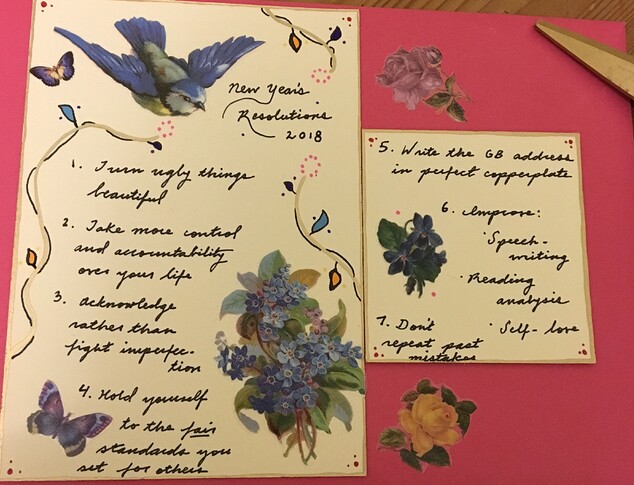 New Year's
Resolutions
2018
1. Turn ugly things
beautiful
2. Take more control
and accountability
over your life
3. Acknowledge
rather than
fight imperfec-
tion
4. Hold yourself
to the fair
standards you
set for others
5. Write the GB address
in perfect copperplate
6. Improve:
· Speech-
writing
· Reading
analysis
· Self-love
7. Don't
repeat past
mistakes